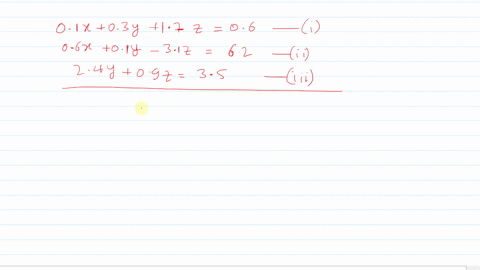 0.1x+0.3y+1.7z = 0.6 —(i)
0.6x+0.1y-3.1z = 62 —(ii)
2.4y+0.9z = 3.5 —(iii)